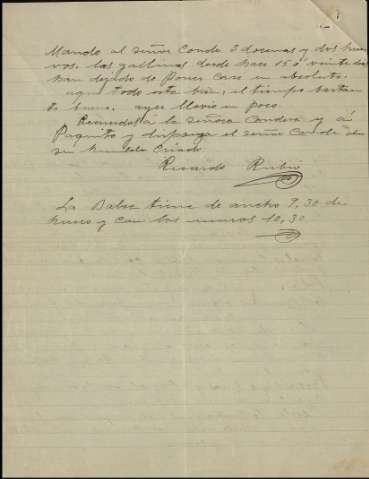 Mando al señor Conde 3 docenas y dos hue
vos. las gallinas desde hace 15 ó vinte dia
han dejado de Poner Casi en absoluto.
aqui todo esta bien, el tiempo bastan
te bueno. ayer llovio un poco.
Recuerdos á la señora Condesa y á
Paquito y disponga el señor Conde de
su humilde Criado
Ricardo Rubio
La Balsa tiene de ancho 9,30 de
hueco y con los muros 10,30